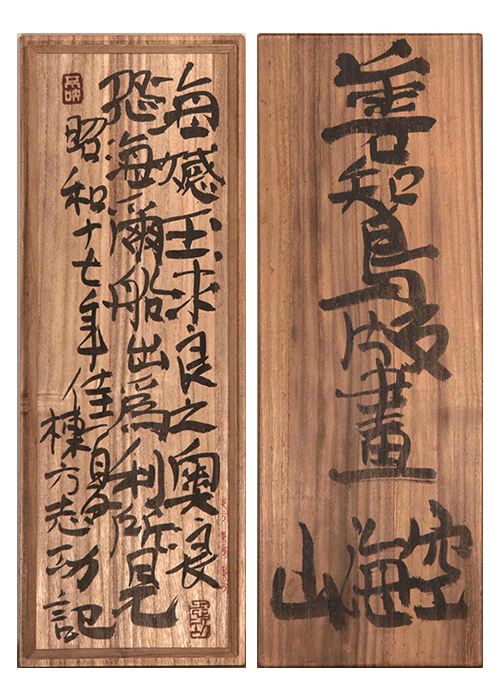 善知鳥版畫
空海山
海玉求良之奥浪
恐海爾船出為利所見
昭和十七年佳
棟方志功記